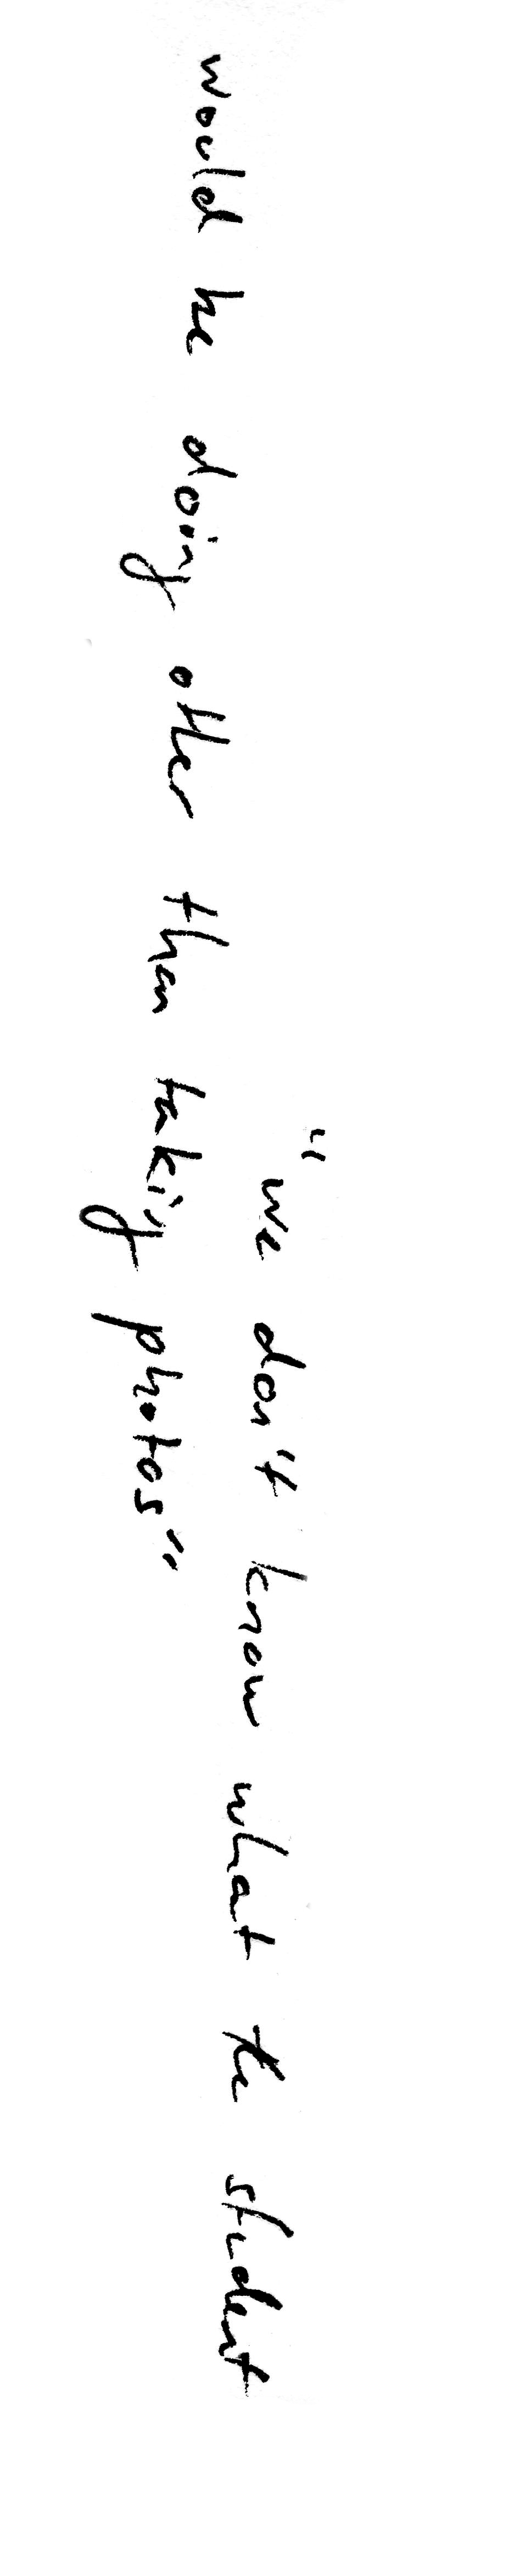 "we don't know what the student
would be doing other than taking photos"